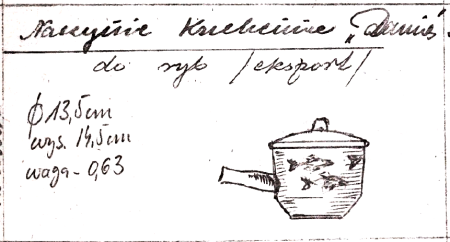 Naczynie Kuchenne „Dania”
do ryb /eksport/
φ 13,5cm
wys. 14,5cm
waga - 0,63